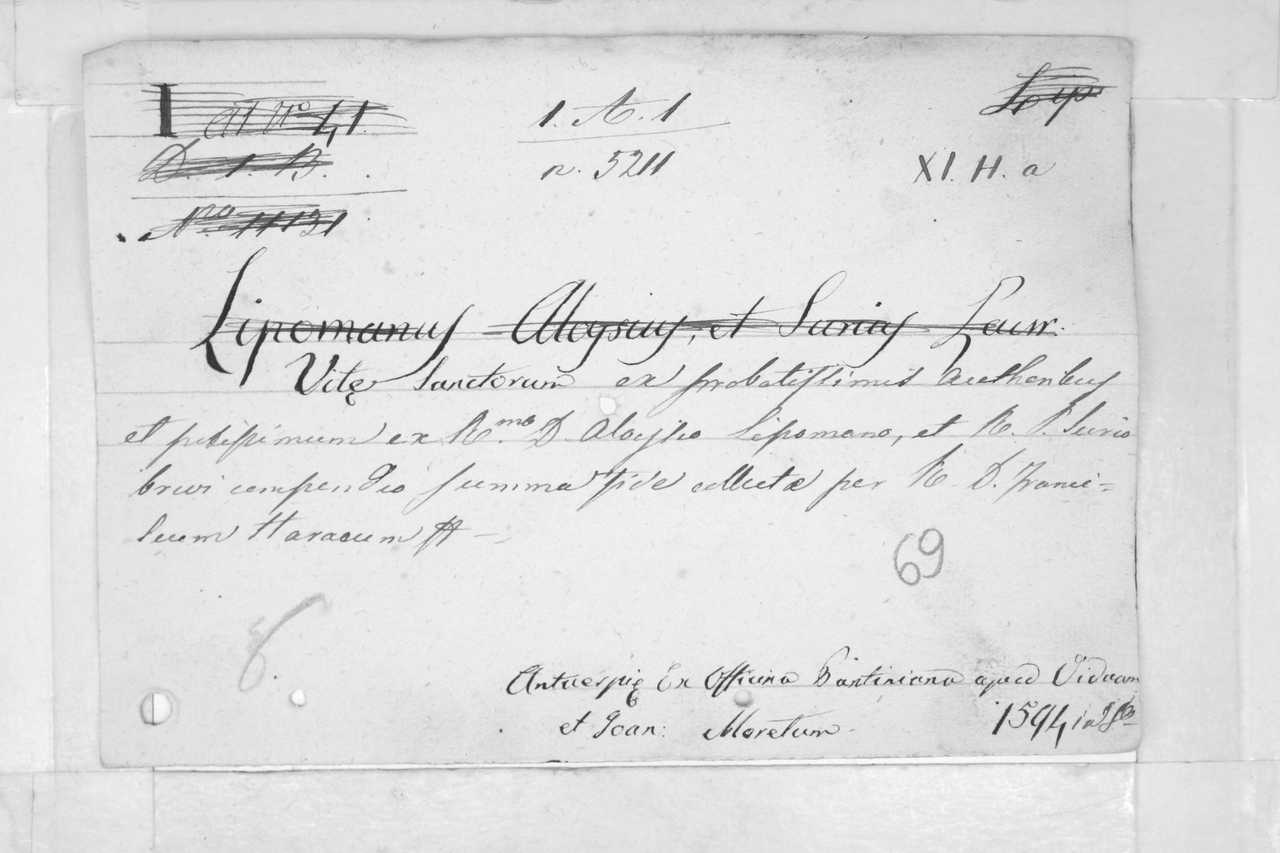 I ad No 41
1. A. 1
Lip
D. 1 B.
n. 5211
XI. H. a
Nro. 11131
Lipomanus Aloysius, et Surius Laur.
Vitę Sanctorum ex probatissimis authoribus
et potissimum ex R.mo D. Aloysio Lipomano, et R. P. Surio
brevi compendio summa fide collectæ per R. D. Franci=
scum Haraeum
69
8.
Antverpię Ex Officina Plantiniana apud Viduam
et Joan: Moretum.
1594 in 8vo